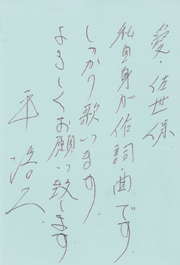 愛・佐世保
私自身が作詞・曲です
しっかり歌います。
よろしくお願い致します
平 浩二